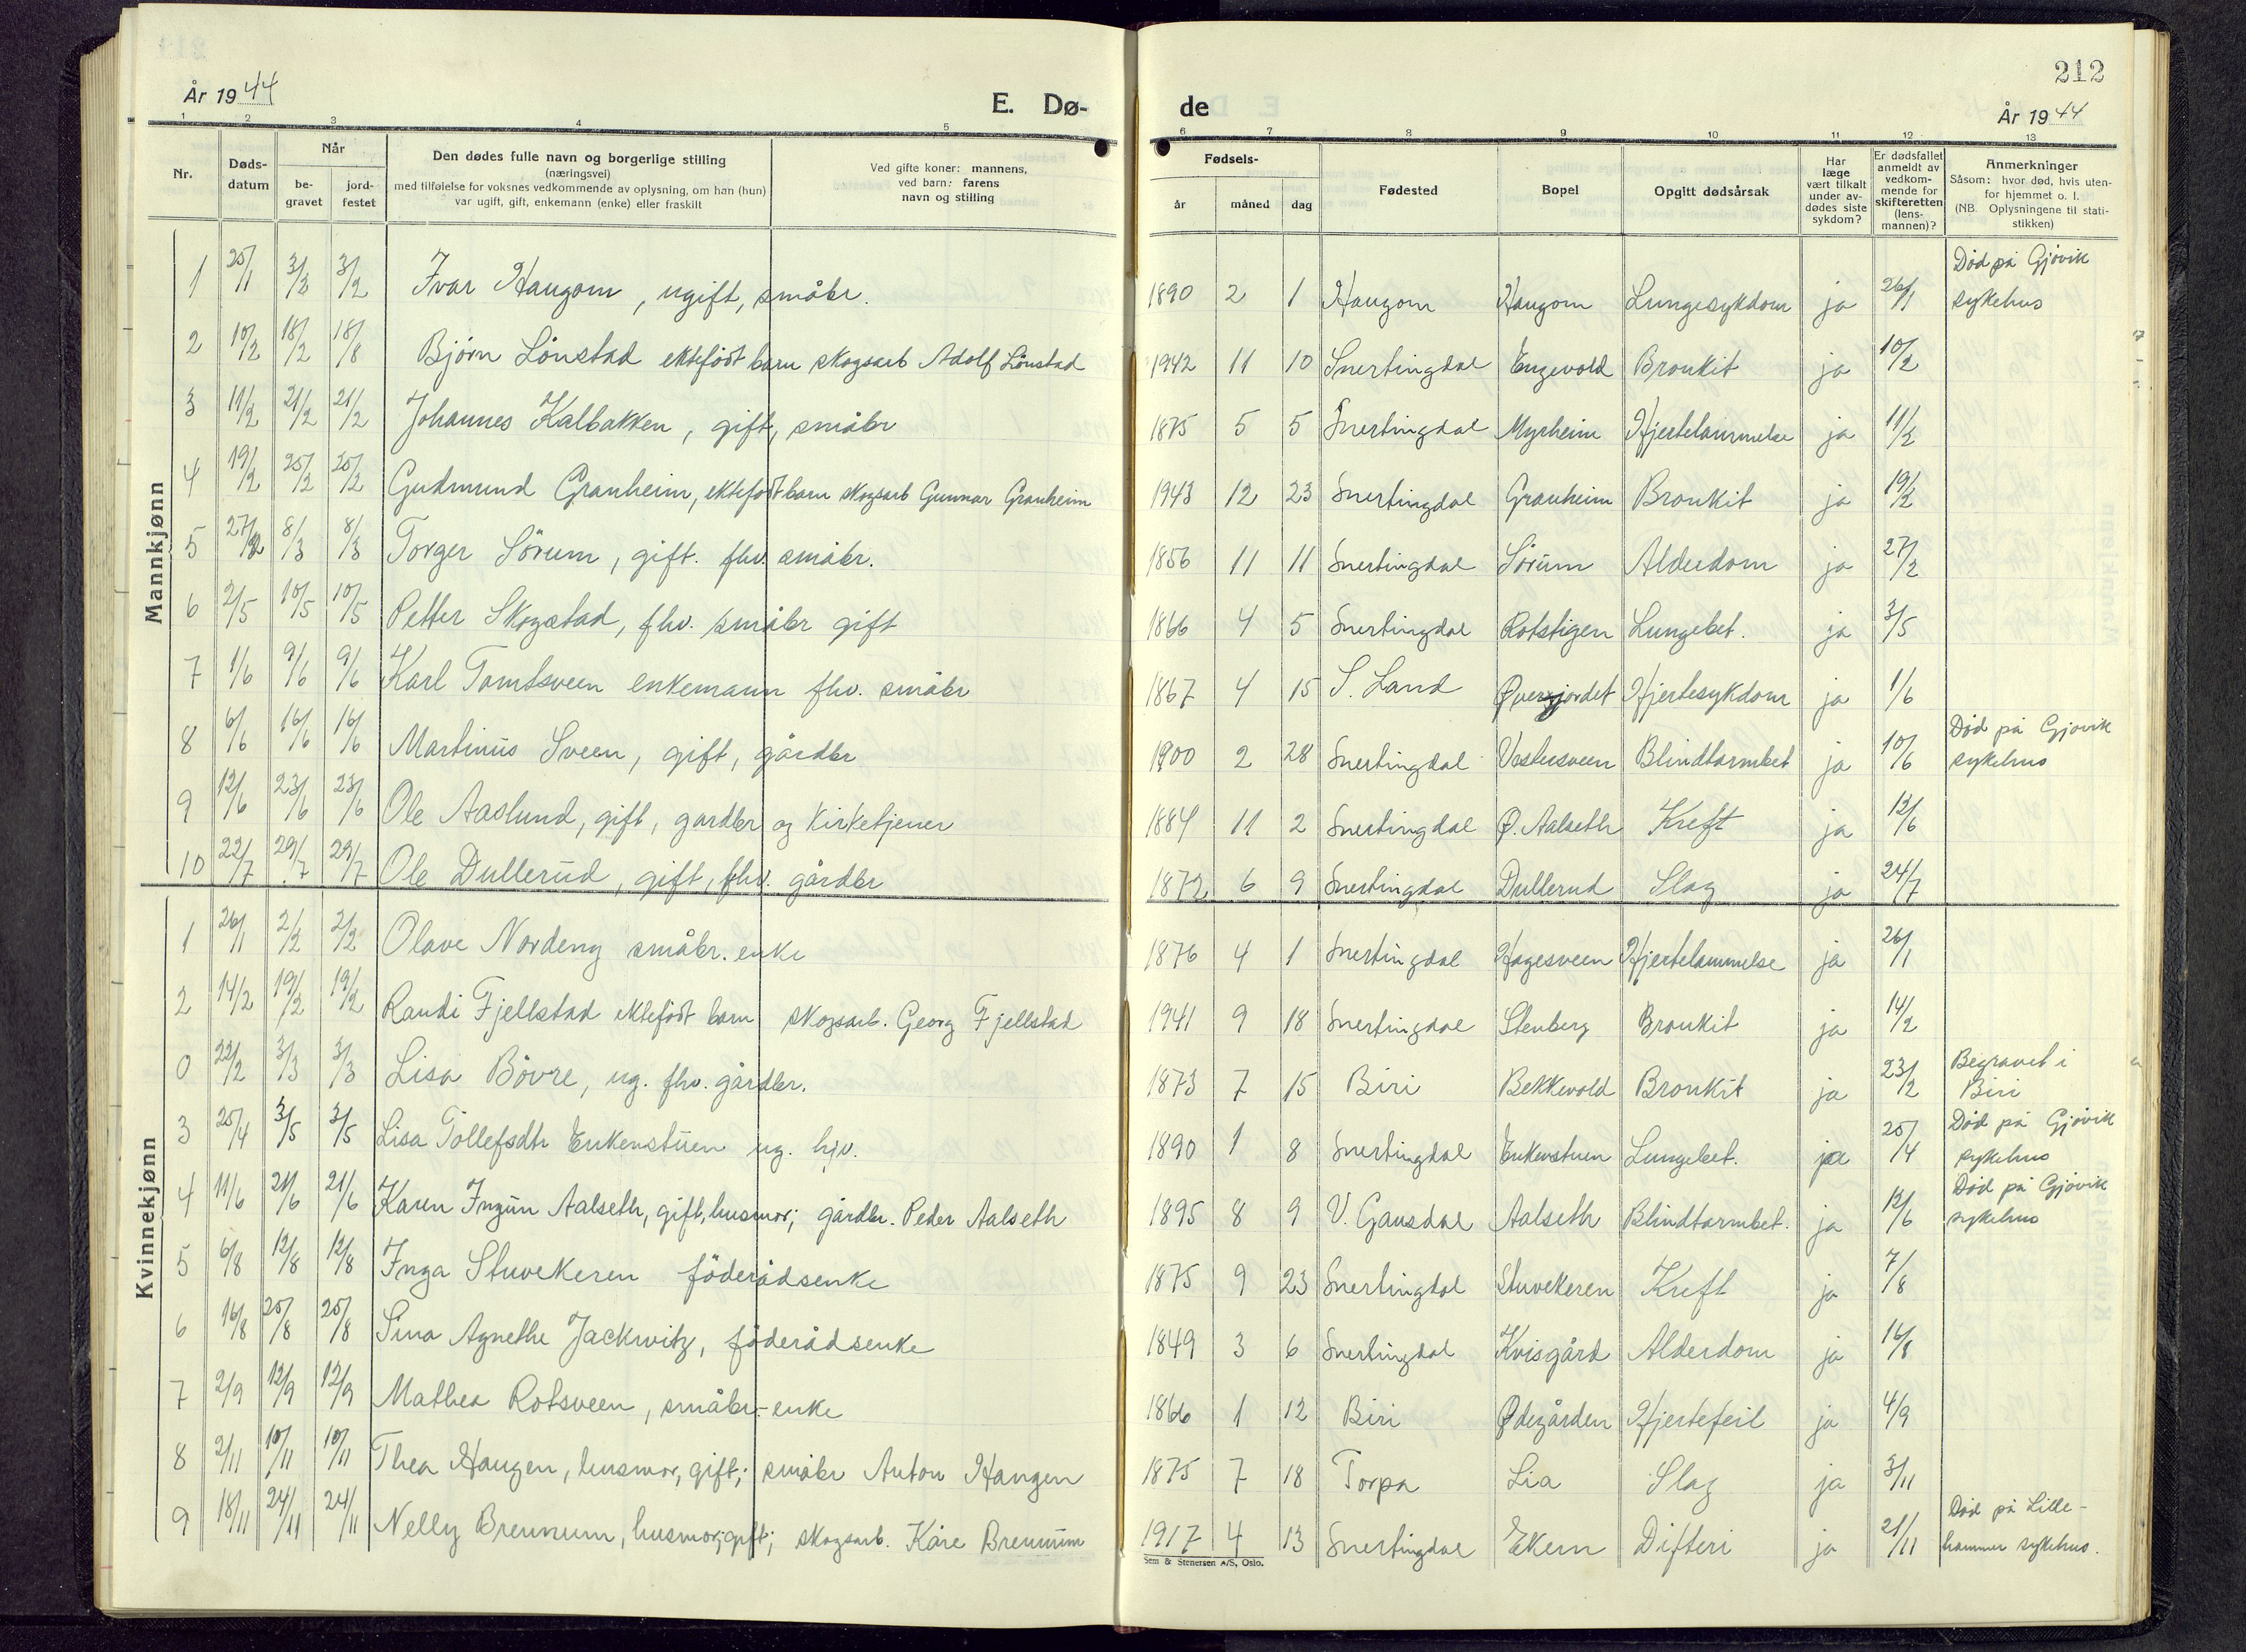 212
År 1944
E. Dø-
de
År 1944
1 2 3 4 5
6 7 8 9 10 11 12 13
Nr.
Døds-
datum
Når
be-
gravet
jord-
festet
Den dødes fulle navn og borgerlige stilling
(næringsvei)
med tilføielse for voksnes vedkommende av oplysning, om han (hun)
var ugift, gift, enkemann (enke) eller fraskilt
Ved gifte koner: mannens,
ved barn: farens
navn og stilling
Fødsels-
år måned dag
Fødested
Bopel
Opgitt dødsårsak
Har
læge
vært tilkalt
under av-
dødes siste
sykdom?
Er dødsfallet
anmeldt av
vedkom-
mende for
skifteretten
(lens-
mannen)?
Anmerkninger
Såsom: hvor død, hvis uten-
for hjemmet o. l.
(NB. Oplysningene til stati-
stikken)
Mannkjønn
1 25/1 3/2 3/2 Ivar Haugom, ugift, småbr. 1890 2 1 Haugom Haugom Lungesykdom ja 26/1 Død på Gjøvik
sykehus
2 10/2 18/2 18/8 Bjørn Lönstad ektefödt barn skogsarb Adolf Lönstad 1942 11 10 Snertingdal Engevold Bronkit ja 10/2
3 11/2 21/2 21/2 Johannes Kalbakken, gift, småbr 1875 5 5 Snertingdal Myrheim Hjertelammelse ja 11/2
4 19/2 25/2 25/2 Gudmund Granheim, ektefödt barn skogsarb Gunnar Granheim 1943 12 23 Snertingdal Granheim Bronkit ja 19/2
5 27/2 8/3 8/3 Torger Sörum, gift. fhv. småbr. 1856 11 11 Snertingdal Sörum Alderdom ja 27/2
6 2/5 10/5 10/5 Petter Skogstad, fhv. småbr gift 1866 4 5 Snertingdal Rotstigen Lungebet. ja 3/5
7 1/6 9/6 9/6 Karl Tomtsveen enkemann fhv. småbr 1867 4 15 S. Land Øverjordet Hjertesykdom ja 1/6
8 6/6 16/6 16/6 Martinus Sveen, gift, gårdbr 1900 2 28 Snertingdal Vestesveen Blindtarmbet ja 10/6 Død på Gjøvik
sykehus
9 12/6 23/6 23/6 Ole Aaslund, gift, gardbr og Kirketjener 1884 11 2 Snertingdal Ø. Aalseth Kreft ja 12/6
10 22/7 29/7 29/7 Ole Dullerud, gift, fhv. gårdbr 1872 6 9 Snertingdal Dullerud Slag ja 24/7
Kvinnekjønn
1 26/1 2/2 2/2 Olave Nordeng småbr. enke 1876 4 1 Snertingdal Hagesveen Hjertelammelse ja 26/1
2 14/2 19/2 19/2 Randi Fjellstad ektefödt barn skogsarb. Georg Fjellstad 1941 9 18 Snertingdal Stenberg Bronkit ja 14/2
0 22/2 3/3 3/3 Lisa Bövre, ug. fhv. gårdbr. 1873 7 15 Biri Bekkevold Bronkit ja 23/2 Begravet i
Biri
3 25/4 3/5 3/5 Lisa Tollefsdtr Enkerstuen ug. hjv. 1890 1 8 Snertingdal Enkerstuen Lungebet. ja 25/14 Død på Gjøvik
sykehus
4 11/6 21/6 21/6 Karen Ingun Aalseth, gift, husmor; gårdbr. Peder Aalseth 1895 8 9 V. Gausdal Aalseth Blindtarmbet. ja 12/6 Død på Gjøvik
sykehus
5 6/8 12/8 12/8 Inga Stuvekeren föderådsenke 1875 9 23 Snertingdal Stuvekeren Kreft ja 7/8
6 16/8 25/8 25/8 Sina Agnethe Jackwitz, föderådsenke 1849 3 6 Snertingdal Kvisgård Alderdom ja 16/8
7 2/9 12/9 12/9 Mathea Rotsveen, småbr-enke 1866 1 12 Biri Ødegården Hjertefeil ja 4/9
8 2/11 10/11 10/11 Thea Haugen, husmor, gift; småbr Anton Haugen 1875 7 18 Torpa Lia Slag ja 3/11
9 18/11 24/11 24/11 Nelly Brennum, husmor; gift; skogsarb. Kåre Brennum 1917 4 13 Snertingdal Ekern Difteri ja 21/11 Død på Lille-
hammer sykehus.
Sem & Stenersen A/S, Oslo.